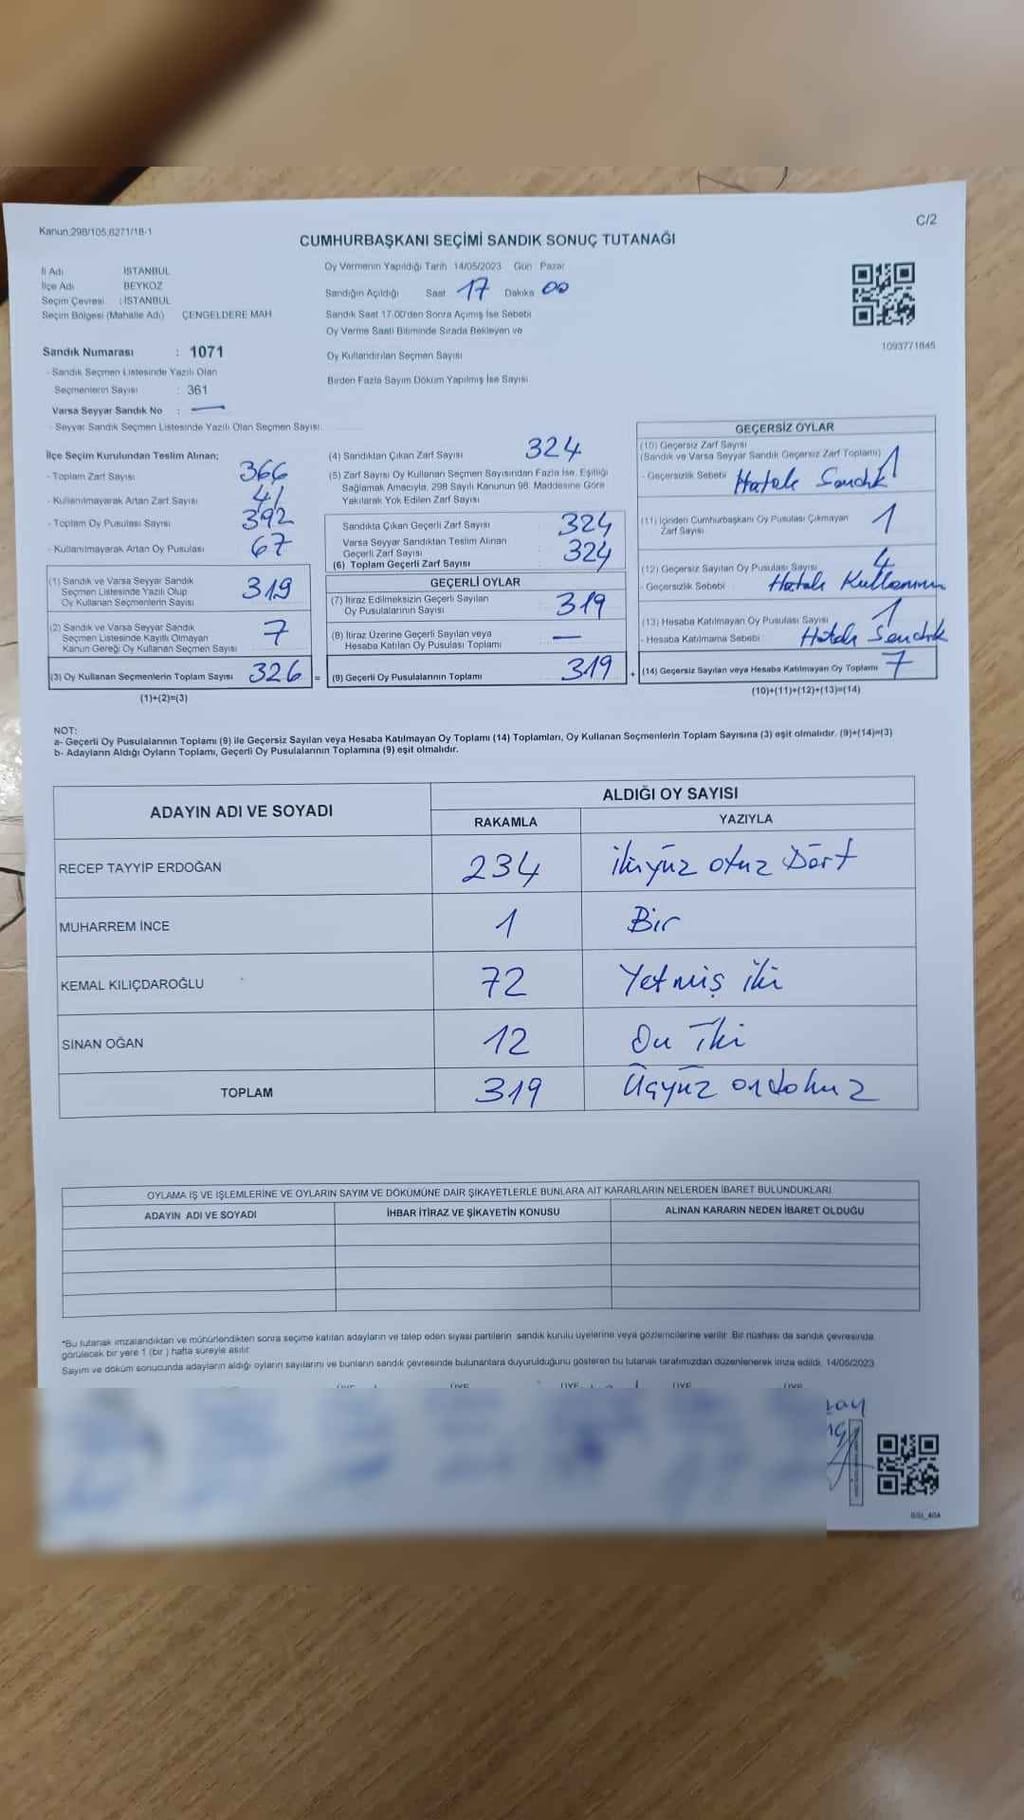 Kanun:298/105,6271/18-1
C/2
CUMHURBAŞKANI SEÇİMİ SANDIK SONUÇ TUTANAĞI
İl Adı : İSTANBUL
İlçe Adı : BEYKOZ
Seçim Çevresi : İSTANBUL
Seçim Bölgesi (Mahalle Adı) ÇENGELDERE MAH
Sandık Numarası : 1071
- Sandık Seçmen Listesinde Yazılı Olan
Seçmenlerin Sayısı : 361
Varsa Seyyar Sandık No : —
- Seyyar Sandık Seçmen Listesinde Yazılı Olan Seçmen Sayısı:
Oy Vermenin Yapıldığı Tarih 14/05/2023 Gün Pazar
Sandığın Açıldığı Saat 17 Dakika 00
Sandık Saat 17.00'den Sonra Açımış İse Sebebi
Oy Verme Saati Bitiminde Sırada Bekleyen ve
Oy Kullandırılan Seçmen Sayısı
Birden Fazla Sayım Döküm Yapılmış İse Sayısı
1093771845
İlçe Seçim Kurulundan Teslim Alınan;
- Toplam Zarf Sayısı 366
- Kullanılmayarak Artan Zarf Sayısı 41
- Toplam Oy Pusulası Sayısı 392
- Kullanılmayarak Artan Oy Pusulası 67
(1) Sandık ve Varsa Seyyar Sandık
Seçmen Listesinde Yazılı Olup
Oy Kullanan Seçmenlerin Sayısı 319
(2) Sandık ve Varsa Seyyar Sandık
Seçmen Listesinde Kayıtlı Olmayan
Kanun Gereği Oy Kullanan Seçmen Sayısı 7
(3) Oy Kullanan Seçmenlerin Toplam Sayısı 326 =
(1)+(2)=(3)
(4) Sandıktan Çıkan Zarf Sayısı 324
(5) Zarf Sayısı Oy Kullanan Seçmen Sayısından Fazla İse, Eşitliği
Sağlamak Amacıyla, 298 Sayılı Kanunun 98. Maddesine Göre
Yakılarak Yok Edilen Zarf Sayısı
Sandıkta Çıkan Geçerli Zarf Sayısı 324
Varsa Seyyar Sandıktan Teslim Alınan
Geçerli Zarf Sayısı
(6) Toplam Geçerli Zarf Sayısı 324
GEÇERLİ OYLAR
(7) İtiraz Edilmeksizin Geçerli Sayılan
Oy Pusulalarının Sayısı 319
(8) İtiraz Üzerine Geçerli Sayılan veya
Hesaba Katılan Oy Pusulası Toplamı —
(9) Geçerli Oy Pusulalarının Toplamı 319 +
GEÇERSİZ OYLAR
(10) Geçersiz Zarf Sayısı
(Sandık ve Varsa Seyyar Sandık Geçersiz Zarf Toplamı) 1
- Geçersizlik Sebebi Hatalı Sandık
(11) İçinden Cumhurbaşkanı Oy Pusulası Çıkmayan
Zarf Sayısı 1
(12) Geçersiz Sayılan Oy Pusulası Sayısı 4
- Geçersizlik Sebebi Hatalı Kullanım
(13) Hesaba Katılmayan Oy Pusulası Sayısı 1
- Hesaba Katılmama Sebebi Hatalı Sandık
(14) Geçersiz Sayılan veya Hesaba Katılmayan Oy Toplamı 7
(10)+(11)+(12)+(13)=(14)
NOT:
a- Geçerli Oy Pusulalarının Toplamı (9) ile Geçersiz Sayılan veya Hesaba Katılmayan Oy Toplamı (14) Toplamları, Oy Kullanan Seçmenlerin Toplam Sayısına (3) eşit olmalıdır. (9)+(14)=(3)
b- Adayların Aldığı Oyların Toplamı, Geçerli Oy Pusulalarının Toplamına (9) eşit olmalıdır.
ADAYIN ADI VE SOYADI
ALDIĞI OY SAYISI
RAKAMLA YAZIYLA
RECEP TAYYİP ERDOĞAN 234 ikiyüz otuz Dört
MUHARREM İNCE 1 Bir
KEMAL KILIÇDAROĞLU 72 Yetmiş iki
SİNAN OĞAN 12 On İki
TOPLAM 319 Üçyüz ondokuz
OYLAMA İŞ VE İŞLEMLERİNE VE OYLARIN SAYIM VE DÖKÜMÜNE DAİR ŞİKAYETLERLE BUNLARA AİT KARARLARIN NELERDEN İBARET BULUNDUKLARI
ADAYIN ADI VE SOYADI İHBAR İTİRAZ VE ŞİKAYETİN KONUSU ALINAN KARARIN NEDEN İBARET OLDUĞU
*Bu tutanak imzalandıktan ve mühürlendikten sonra seçime katılan adayların ve talep eden siyasi partilerin sandık kurulu üyelerine veya gözlemcilerine verilir. Bir nüshası da sandık çevresinde
görülecek bir yere 1 (bir) hafta süreyle asılır.
Sayım ve döküm sonucunda adayların aldığı oyların sayılarını ve bunların sandık çevresinde bulunanlara duyurulduğunu gösteren bu tutanak tarafımızdan düzenlenerek imza edildi. 14/05/2023
ÜYE ÜYE ÜYE ÜYE ÜYE